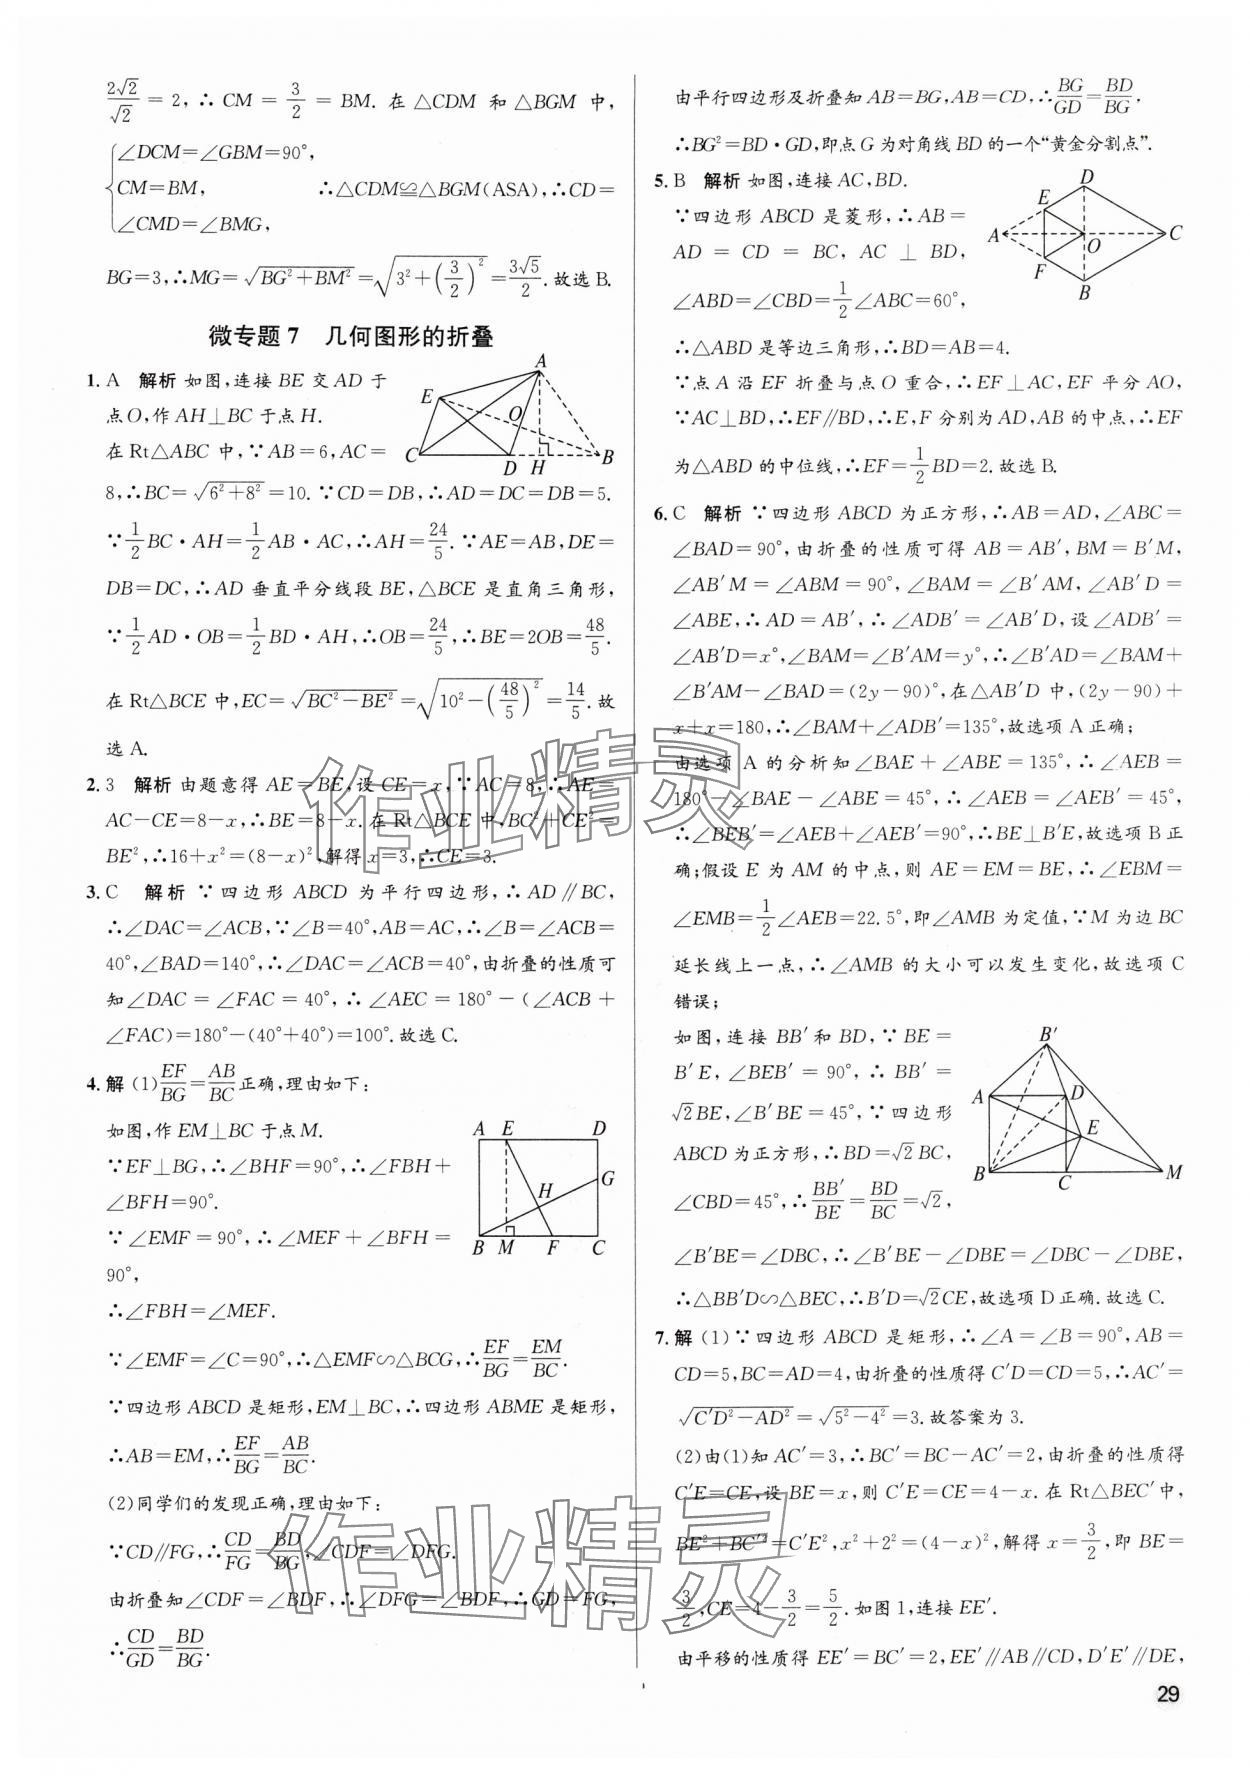 2√2/√2=2,∴CM=3/2=BM.在△CDM 和△BGM 中,
{∠DCM=∠GBM=90°,
CM=BM, ∴△CDM≌△BGM(ASA),∴CD=
∠CMD=∠BMG,
BG=3,∴MG=√(BG²+BM²)=√(3²+(3/2)²)=3√5/2.故选B.
微专题7 几何图形的折叠
1. A 解析 如图,连接BE交AD于
点O,作AH⊥BC于点H.
在Rt△ABC中,∵AB=6,AC=
8,∴BC=√(6²+8²)=10.∵CD=DB,∴AD=DC=DB=5.
∵1/2BC·AH=1/2AB·AC,∴AH=24/5.∵AE=AB,DE=
DB=DC,∴AD 垂直平分线段BE,△BCE是直角三角形,
∵1/2AD·OB=1/2BD·AH,∴OB=24/5,∴BE=2OB=48/5.
在Rt△BCE中,EC=√(BC²-BE²)=√(10²-(48/5)²)=14/5.故
选A.
2. 3 解析 由题意得AE=BE,设CE=x,∵AC=8,∴AE=
AC-CE=8-x,∴BE=8-x.在Rt△BCE中,BC²+CE²=
BE²,∴16+x²=(8-x)²,解得x=3,∴CE=3.
3. C 解析 ∵四边形ABCD为平行四边形,∴AD∥BC,
∴∠DAC=∠ACB,∵∠B=40°,AB=AC,∴∠B=∠ACB=
40°,∠BAD=140°,∴∠DAC=∠ACB=40°,由折叠的性质可
知∠DAC=∠FAC=40°,∴∠AEC=180°-(∠ACB+
∠FAC)=180°-(40°+40°)=100°.故选C.
4. 解 (1)EF/BG=AB/BC正确,理由如下:
如图,作EM⊥BC于点M.
∵EF⊥BG,∴∠BHF=90°,∴∠FBH+
∠BFH=90°.
∵∠EMF=90°,∴∠MEF+∠BFH=
90°,
∴∠FBH=∠MEF.
∵∠EMF=∠C=90°,∴△EMF∽△BCG,∴EF/BG=EM/BC.
∵四边形ABCD是矩形,EM⊥BC,∴四边形ABME是矩形,
∴AB=EM,∴EF/BG=AB/BC.
(2)同学们的发现正确,理由如下:
∵CD∥FG,∴CD/FG=BD/BG,∠CDF=∠DFG.
由折叠知∠CDF=∠BDF,∴∠DFG=∠BDF,∴GD=FG,
∴CD/GD=BD/BG.
由平行四边形及折叠知AB=BG,AB=CD,∴BG/GD=BD/BG,
∴BG²=BD·GD,即点G为对角线BD的一个“黄金分割点”.
5. B 解析 如图,连接AC,BD.
∵四边形ABCD是菱形,∴AB=
AD=CD=BC,AC⊥BD,
∠ABD=∠CBD=1/2∠ABC=60°,
∴△ABD是等边三角形,∴BD=AB=4.
∵点A沿EF折叠与点O重合,∴EF⊥AC,EF平分AO,
∵AC⊥BD,∴EF∥BD,∴E,F分别为AD,AB的中点,∴EF
为△ABD的中位线,∴EF=1/2BD=2.故选B.
6. C 解析 ∵四边形ABCD为正方形,∴AB=AD,∠ABC=
∠BAD=90°,由折叠的性质可得AB=AB′,BM=B′M,
∠AB′M=∠ABM=90°,∠BAM=∠B′AM,∠AB′D=
∠ABE,∴AD=AB′,∴∠ADB′=∠AB′D,设∠ADB′=
∠AB′D=x°,∠BAM=∠B′AM=y°,∴∠B′AD=∠BAM+
∠B′AM-∠BAD=(2y-90)°,在△AB′D中,(2y-90)+
x+x=180,∴∠BAM+∠ADB′=135°,故选项A正确;
由选项A的分析知∠BAE+∠ABE=135°,∴∠AEB=
180°-∠BAE-∠ABE=45°,∴∠AEB=∠AEB′=45°,
∴∠BEB′=∠AEB+∠AEB′=90°,∴BE⊥B′E,故选项B正
确;假设E为AM的中点,则AE=EM=BE,∴∠EBM=
∠EMB=1/2∠AEB=22.5°,即∠AMB为定值,∵M为边BC
延长线上一点,∴∠AMB的大小可以发生变化,故选项C
错误;
如图,连接BB′和BD,∵BE=
B′E,∠BEB′=90°,∴BB′=
√2BE,∠B′BE=45°,∵四边形
ABCD为正方形,∴BD=√2BC,
∠CBD=45°,∴BB′/BE=BD/BC=√2,
∠B′BE=∠DBC,∴∠B′BE-∠DBE=∠DBC-∠DBE,
∴△BB′D∽△BEC,∴B′D=√2CE,故选项D正确.故选C.
7. 解 (1)∵四边形ABCD是矩形,∴∠A=∠B=90°,AB=
CD=5,BC=AD=4,由折叠的性质得C′D=CD=5,∴AC′=
√(C′D²-AD²)=√(5²-4²)=3.故答案为3.
(2)由(1)知AC′=3,∴BC′=BC-AC′=2,由折叠的性质得
C′E=CE,设BE=x,则C′E=CE=4-x.在Rt△BEC′中,
BE²+BC′²=C′E²,x²+2²=(4-x)²,解得x=3/2,即BE=
3/2,CE=4-3/2=5/2.如图1,连接EE′.
由平移的性质得EE′=BC′=2,EE′∥AB∥CD,D′E′∥DE,
29
作业精灵
作业精灵